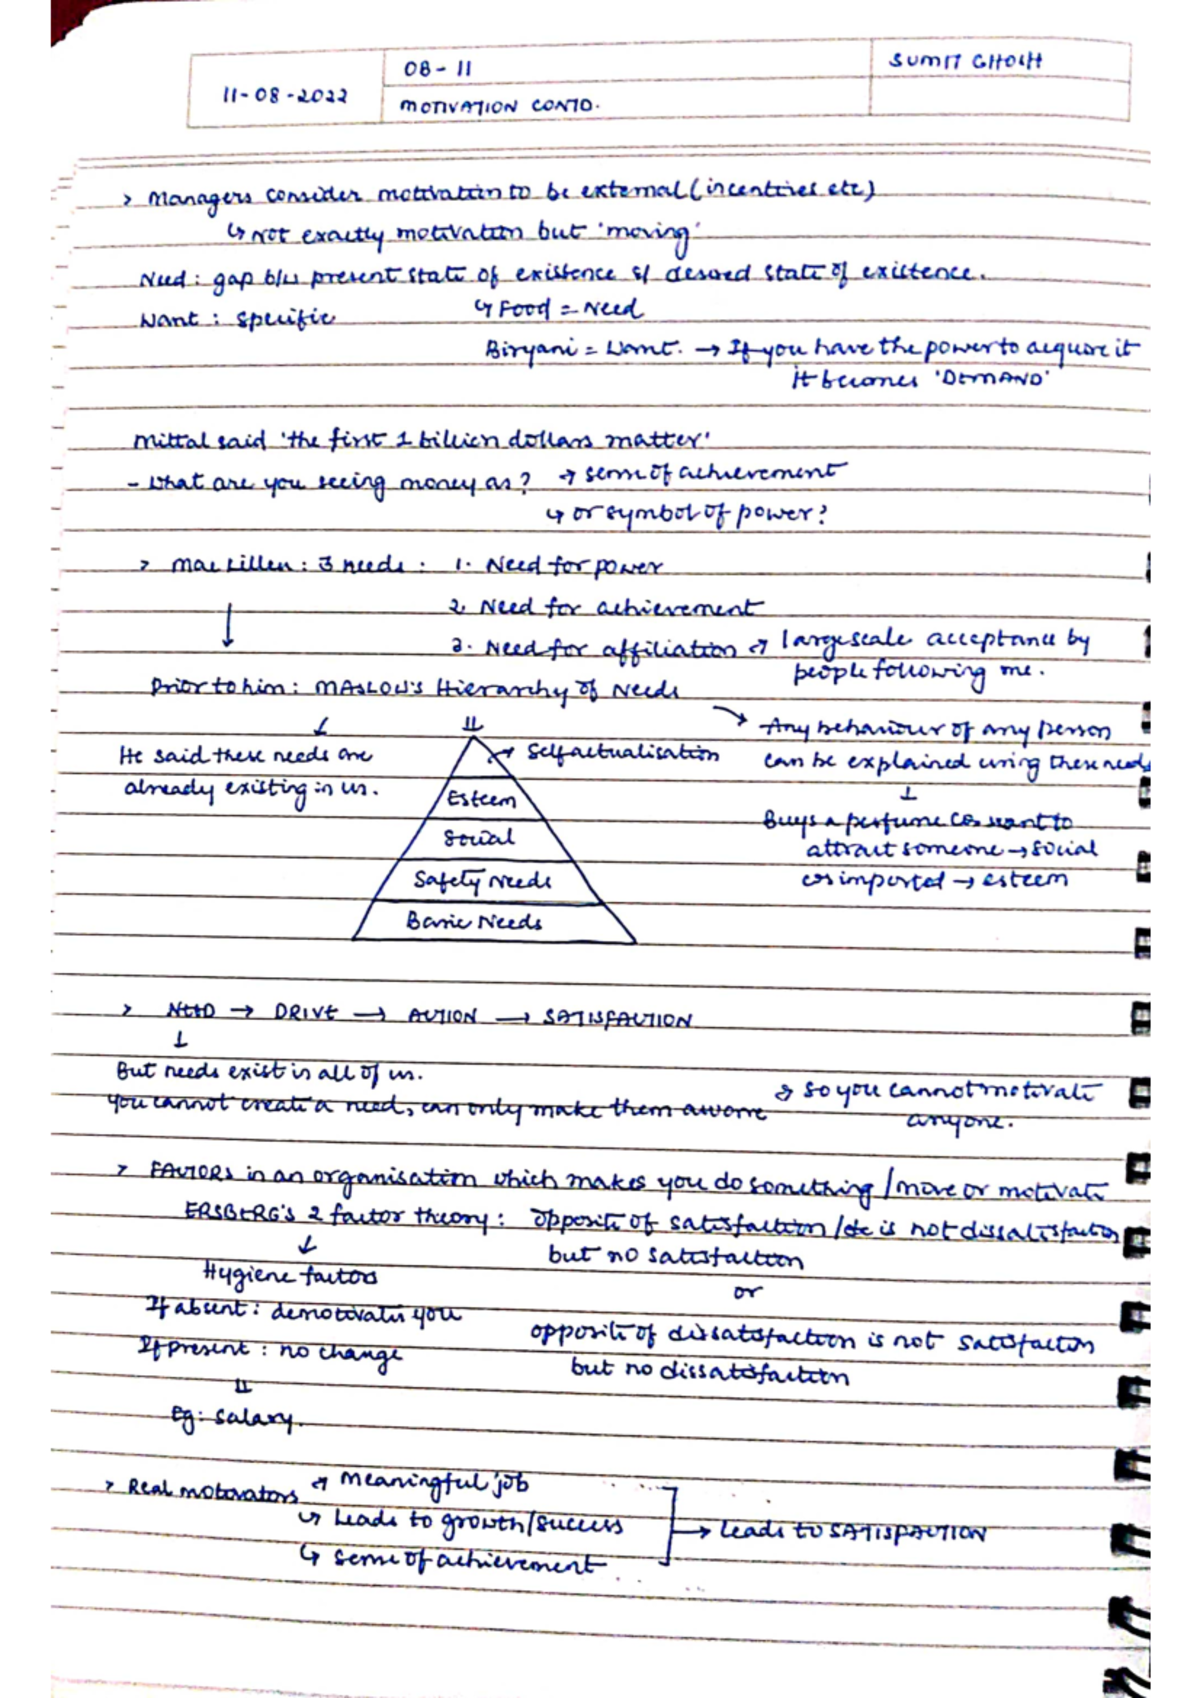 11-08-2022
08-11
MOTIVATION CONTD.
SUMIT GHOSH
> Managers consider motivation to be external (incentives etc)
↳ Not exactly motivation but 'moving'
Need : gap b/w present state of existence & desired state of existence.
Want : specific
↳ Food = Need
Biryani = Want. → If you have the power to acquire it
it becomes 'DEMAND'
Mittal said 'the first 1 billion dollars matter'
- What are you seeing money as? → sense of achievement
↳ or symbol of power?
> Mac Lillen : 3 needs : 1. Need for power
2. Need for achievement
3. Need for affiliation → large scale acceptance by
people following me.
Prior to him : MASLOW's Hierarchy of Needs
He said these needs are
already existing in us.
Self actualisation
Esteem
Social
Safety Needs
Basic Needs
Any behaviour of any person
can be explained using these needs
Buys a perfume cos want to
attract someone → social
cos imported → esteem
> NEED → DRIVE → ACTION → SATISFACTION
But needs exist in all of us.
You cannot create a need, can only make them aware
→ so you cannot motivate
anyone.
> FACTORS in an organisation which makes you do something / move or motivate
ERSBERG'S 2 factor theory : opposite of satisfaction / is not dissatisfaction
but no satisfaction
or
opposite of dissatisfaction is not satisfaction
but no dissatisfaction
Hygiene factors
If absent : demotivates you
If present : no change
Eg : salary.
> Real motivators → meaningful job
↳ Leads to growth/success
↳ sense of achievement
→ leads to SATISFACTION